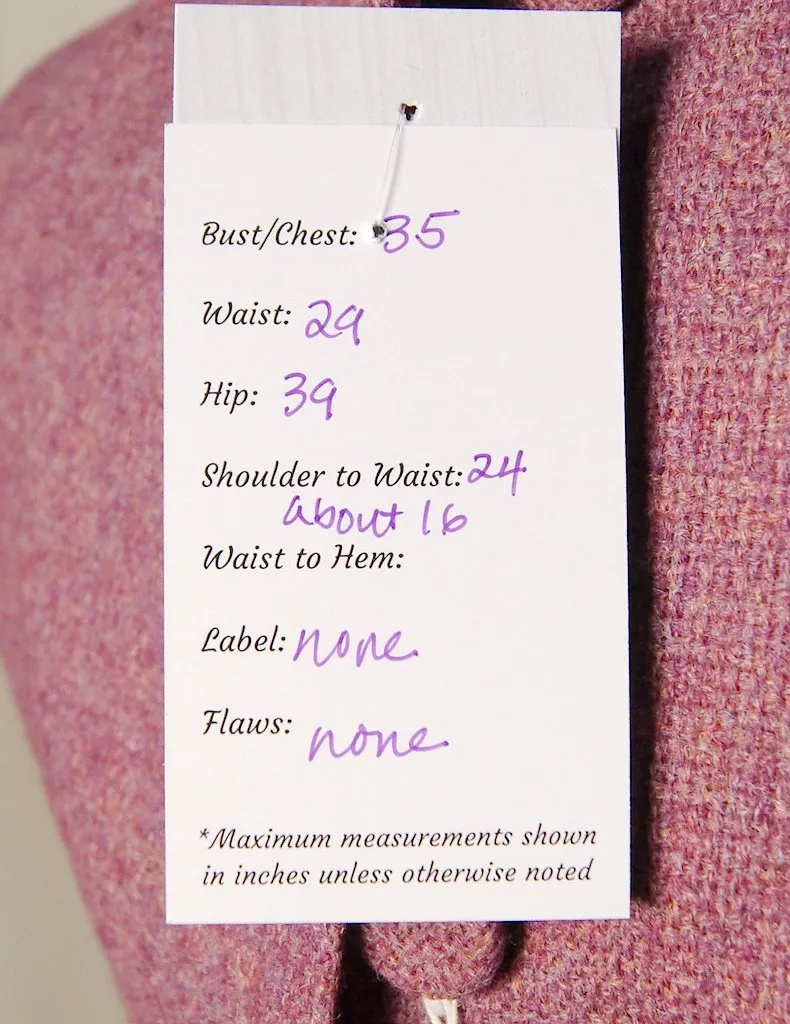 Bust/Chest: 35
Waist: 29
Hip: 39
Shoulder to Waist: 24
about 16
Waist to Hem:
Label: none
Flaws: none
*Maximum measurements shown
in inches unless otherwise noted